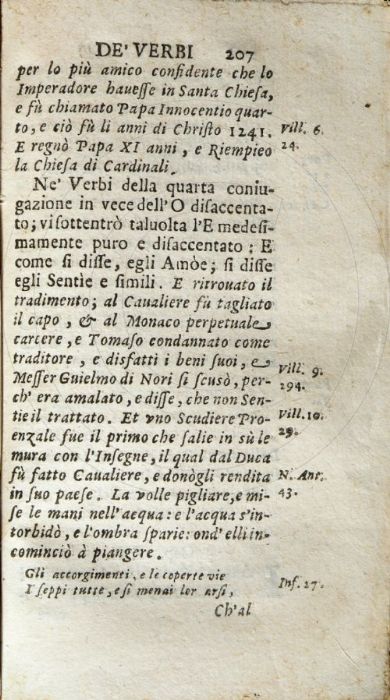 DE' VERBI 207
per lo più amico confidente che lo
Imperadore hauesse in Santa Chiesa,
e fù chiamato Papa Innocentio quar-
to, e ciò fù li anni di Christo 1241. Vill. 6.
E regnò Papa XI anni, e Riempieo 24.
la Chiesa di Cardinali.
Ne' Verbi della quarta coniu-
gazione in vece dell'O disaccenta-
to; vi sottentrò taluolta l'E medesi-
mamente puro e disaccentato: E
come si disse, egli Amòe; si disse
egli Sentìe e simili. E ritrouato il
tradimento; al Caualiere fù tagliato
il capo, & al Monaco perpetuale
carcere, e Tomaso condannato come
traditore, e disfatti i beni suoi, e
Messer Guielmo di Nori si scusò, per- Vill. 9.
ch' era amalato, e disse, che non Sen- 294.
tìe il trattato. Et vno Scudiere Pro- Vill. 10.
enzale fue il primo che salie in sù le 29.
mura con l'Insegne, il qual dal Duca
fù fatto Caualiere, e donògli rendita N. Ant.
in suo paese. La volle pigliare, e mi- 43.
se le mani nell'acqua: e l'acqua s'in-
torbidò, e l'ombra sparìe: ond' elli in-
cominciò à piangere.
Gli accorgimenti, e le coperte vie
I seppi tutte, e sì menai lor arsi, Inf. 27.
Ch'al